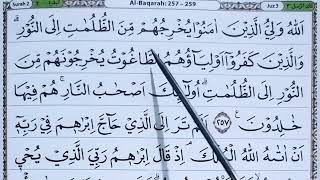 Surah 2
Al-Baqarah: 257 - 259
Juz 3
اللّٰهُ وَلِيُّ الَّذِيْنَ اٰمَنُوْا يُخْرِجُهُمْ مِّنَ الظُّلُمٰتِ اِلَى النُّوْرِ
وَالَّذِيْنَ كَفَرُوْٓا اَوْلِيَآؤُهُمُ الطَّاغُوْتُ يُخْرِجُوْنَهُمْ مِّنَ
النُّوْرِ اِلَى الظُّلُمٰتِ اُولٰٓئِكَ اَصْحٰبُ النَّارِ هُمْ فِيْهَا
خٰلِدُوْنَ ٢٥٧ اَلَمْ تَرَ اِلَى الَّذِيْ حَآجَّ اِبْرٰهٖمَ فِيْ رَبِّهٖٓ
اَنْ اٰتٰىهُ اللّٰهُ الْمُلْكَ اِذْ قَالَ اِبْرٰهٖمُ رَبِّيَ الَّذِيْ يُحْيٖ